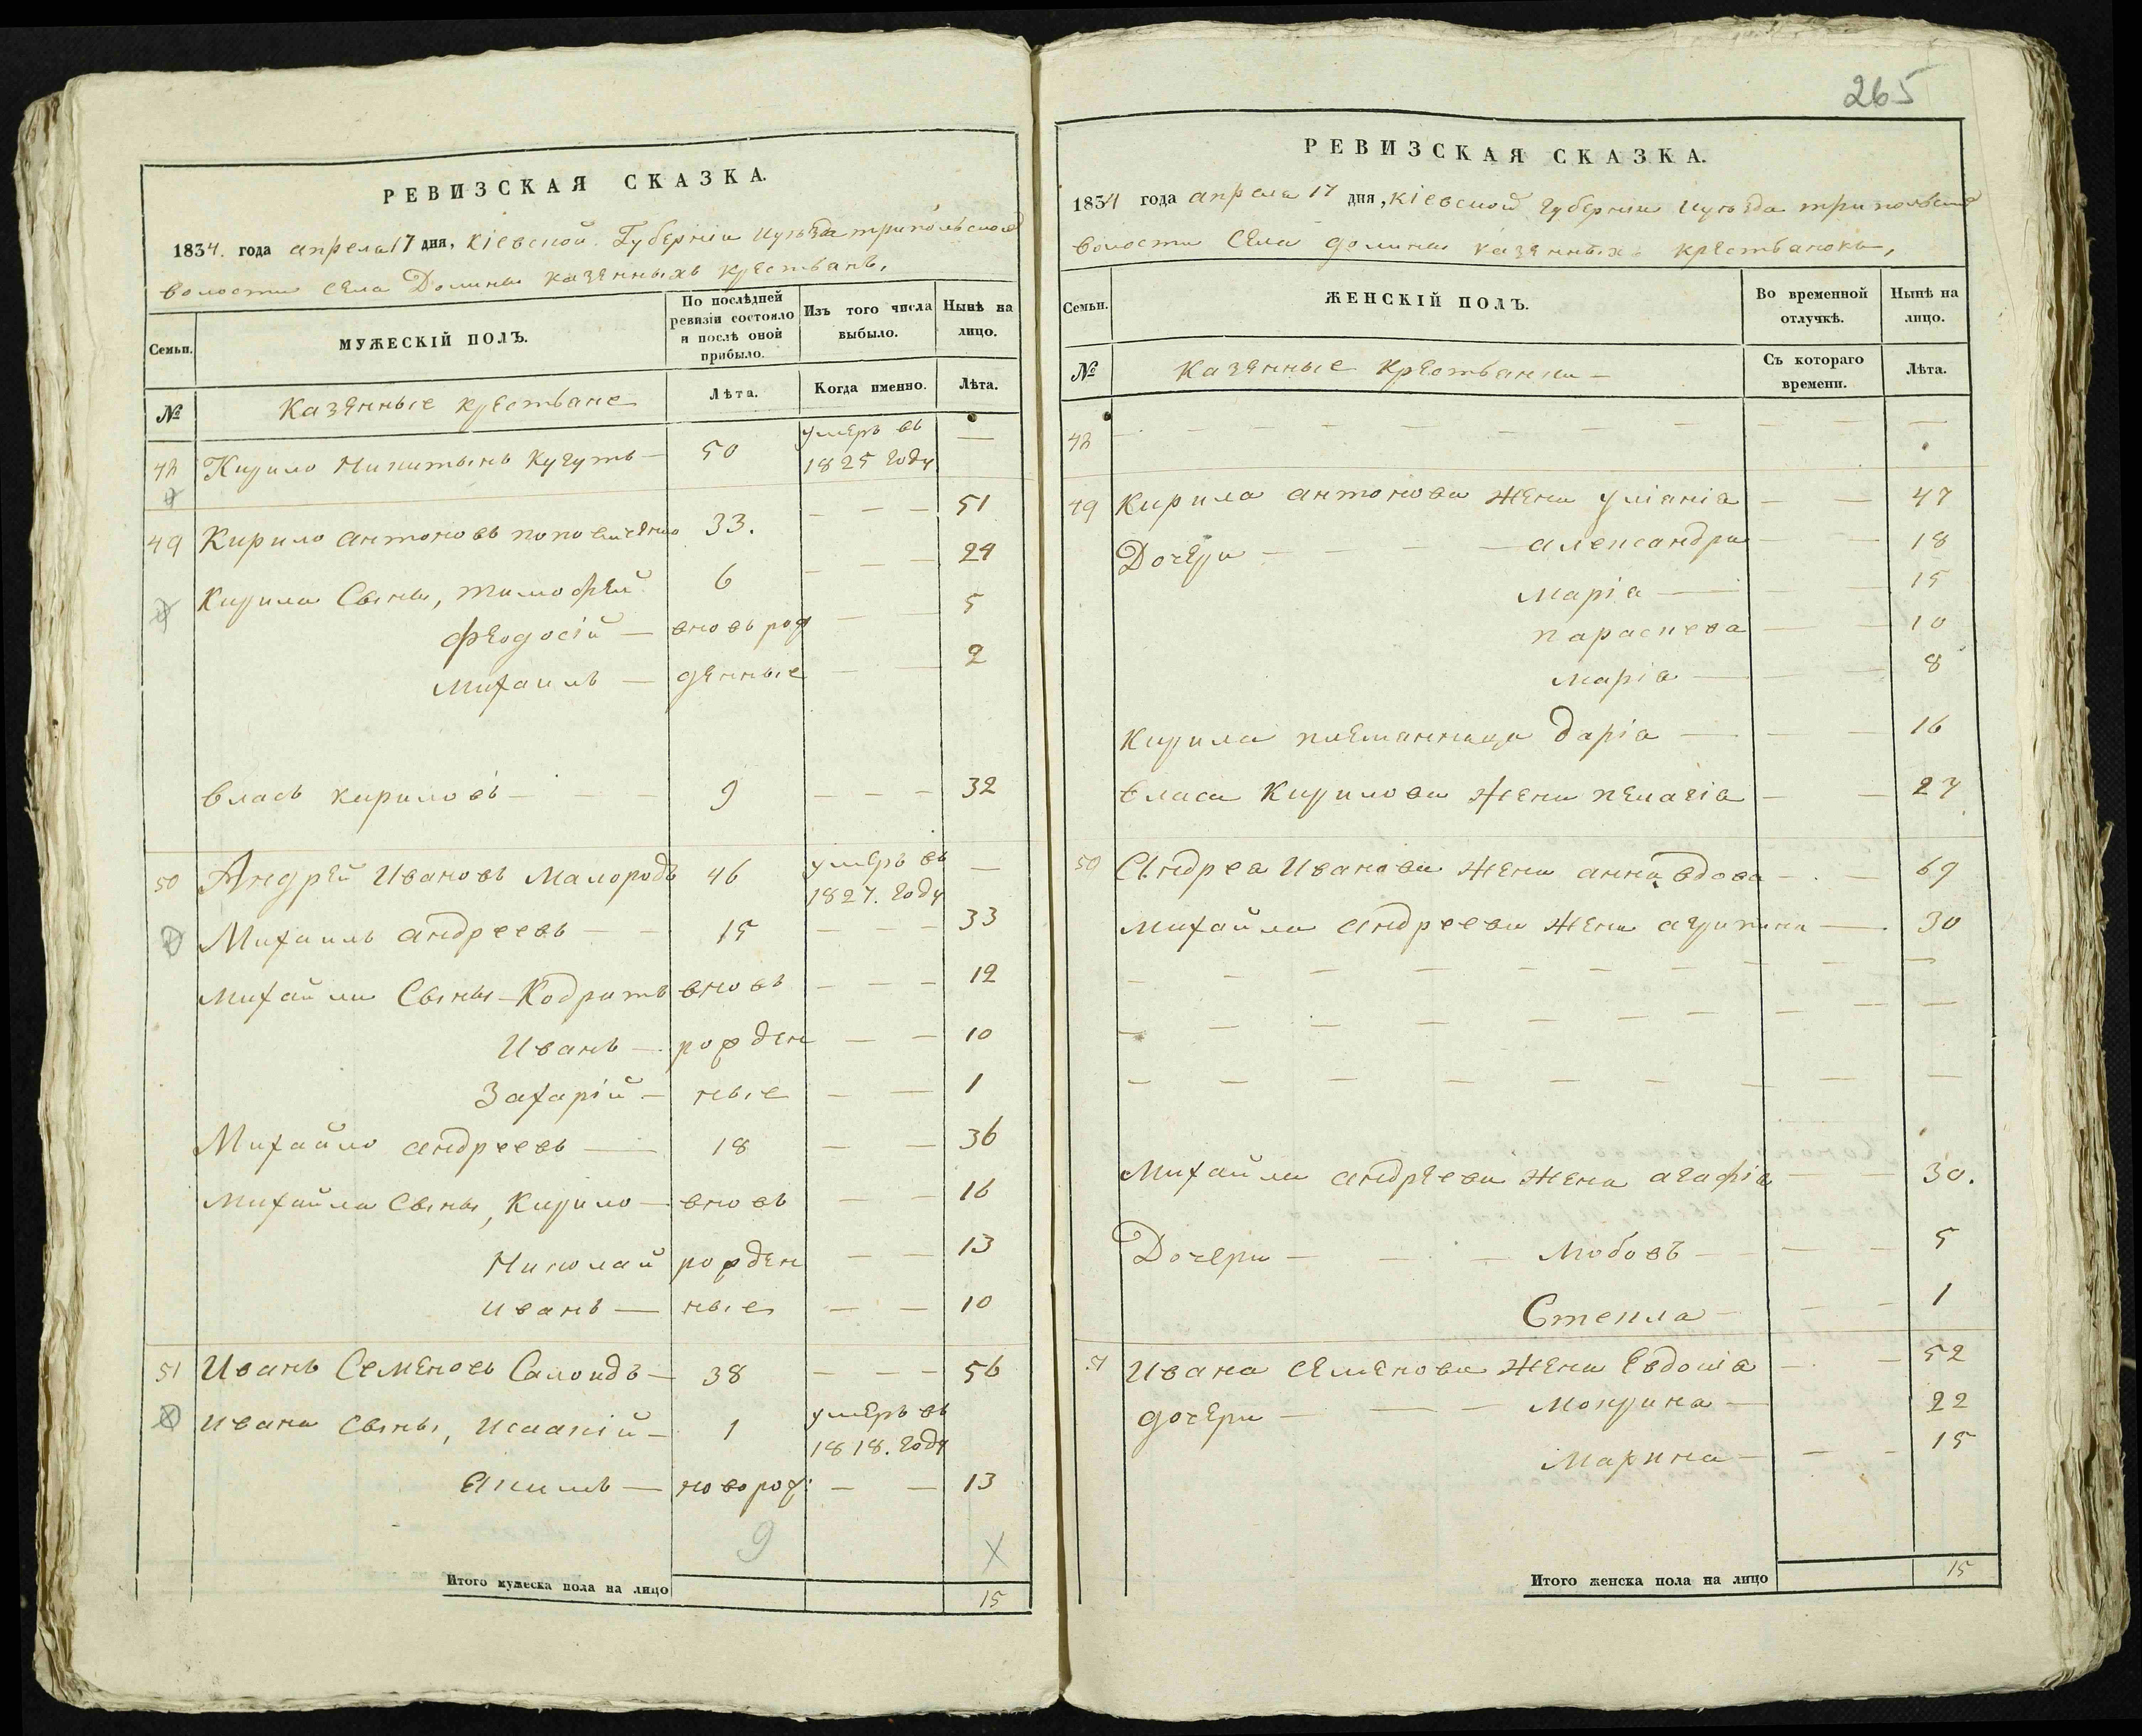 РЕВИЗСКАЯ СКАЗКА.
1834. года апреля 17 дня, Кіевской Губерніи и уѣзда трипольской
волости села Долины казенныхъ крестьянъ,
Семьи.
МУЖЕСКІЙ ПОЛЪ.
По послѣдней
ревизіи состояло
и послѣ оной
прибыло.
Изъ того числа
выбыло.
Нынѣ на
лицо.
№
Казенные крестьяне
Лѣта.
Когда именно.
Лѣта.
48 Кирило Никитынъ 50 умеръ въ —
1825 году
49 Кирило антоновъ 33. — — — 51
Кирила Сыны, тимофей 6 — — — 24
феодосій — вновь рож — — 5
Михаилъ — денные — — 2
Власъ кириловъ — — — 9 — — — 32
50 Андрей Ивановъ Малородъ 46 умеръ въ —
1827. году
Михаилъ андреевъ — — 15 — — — 33
Михайла Сыны — Кодратъ вновь — — — 12
Иванъ — рожден — — 10
Захарій — ные — — 1
Михайло андреевъ — 18 — — 36
Михайла Сыны, Кирило — вновь — — 16
Николай рожден — — 13
иванъ — ные — — 10
51 Иванъ Семеновъ 38 — — — 56
ивана Сыны, Исаакій — 1 умеръ въ
1818. году
Якимъ — новорож: — — 13
9
Х
Итого мужеска пола на лицо
15
265
РЕВИЗСКАЯ СКАЗКА.
1834 года апреля 17 дня, кіевской губерніи и уѣзда трипольской
волости села долины казенныхъ крестьянокъ,
Семьи.
ЖЕНСКІЙ ПОЛЪ.
Во временной
отлучкѣ.
Нынѣ на
лицо.
№
Казенные крестьянки —
Съ котораго
времени.
Лѣта.
48 — — — — — — — — — — —
49 Кирила антонова жена уліанія — — 47
Дочери — — — — александра — — 18
Марія — — — 15
параскева — — 10
марія — — — 8
Кирила племянница Дарія — — — 16
власа Кирилова жена пелагія — — 27
50 Андрея Иванова жена анна вдова — — 69
Михайла андреева жена агрипина — 30
— — — — — — — — — —
— — — — — — — — — —
— — — — — — — — —
Михайла андреева жена агафія — — 30.
Дочери — — — Любовъ — — — 5
Стекла — — — 1
51 Ивана Семенова жена Евдокія — — 52
дочери — — — Мокрина — 22
Марина — — — 15
Итого женска пола на лицо
15